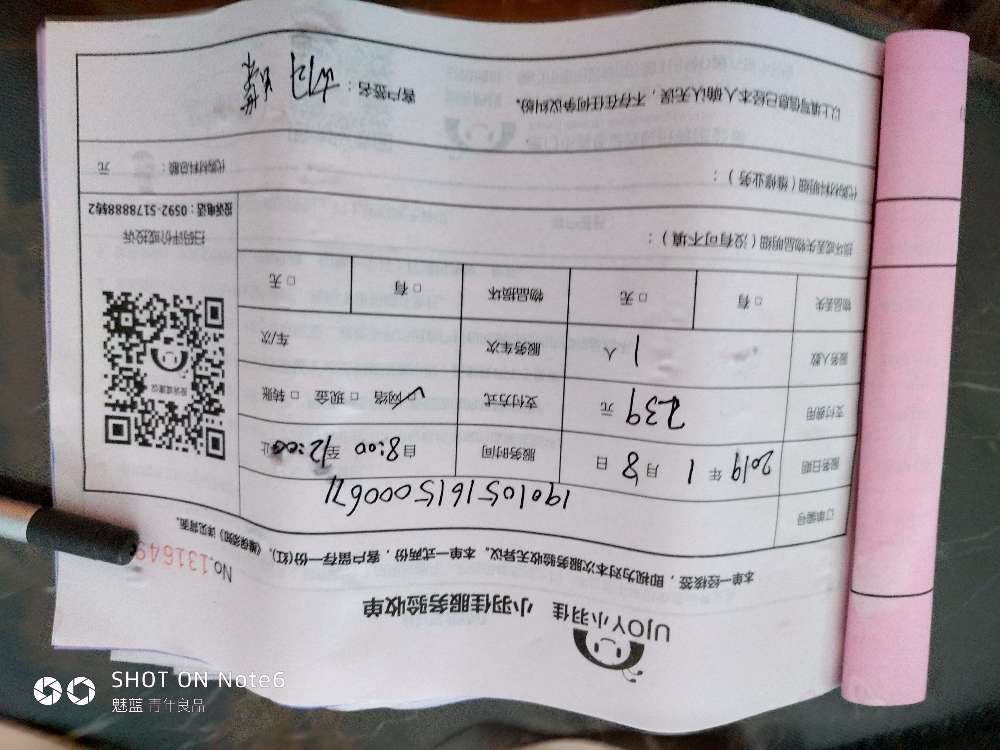 UJOY小羽佳 小羽佳服务验收单
No.131649
本单一经核签，即视为对本次服务验收无异议。本单一式两份，客户留存一份(红)。《维保须知》详见背面。
订单编号 1901051615000671
服务日期 2019年1月8日 服务时间 自8:00至12:00止
支付费用 239元 支付方式 ☑网络 □现金 □转账
服务人数 1人 服务车次 车/次
物品丢失 □有 □无 物品损坏 □有 □无
损坏或丢失物品明细（没有可不填）：
代购材料明细（维修业务）：
代购材料总额： 元
以上填写信息已经本人确认无误，不存在任何争议纠纷。
客户签名：
投诉或建议
扫码评价或投诉
投诉电话：0592-5178888转2
SHOT ON Note6
魅蓝 青年良品